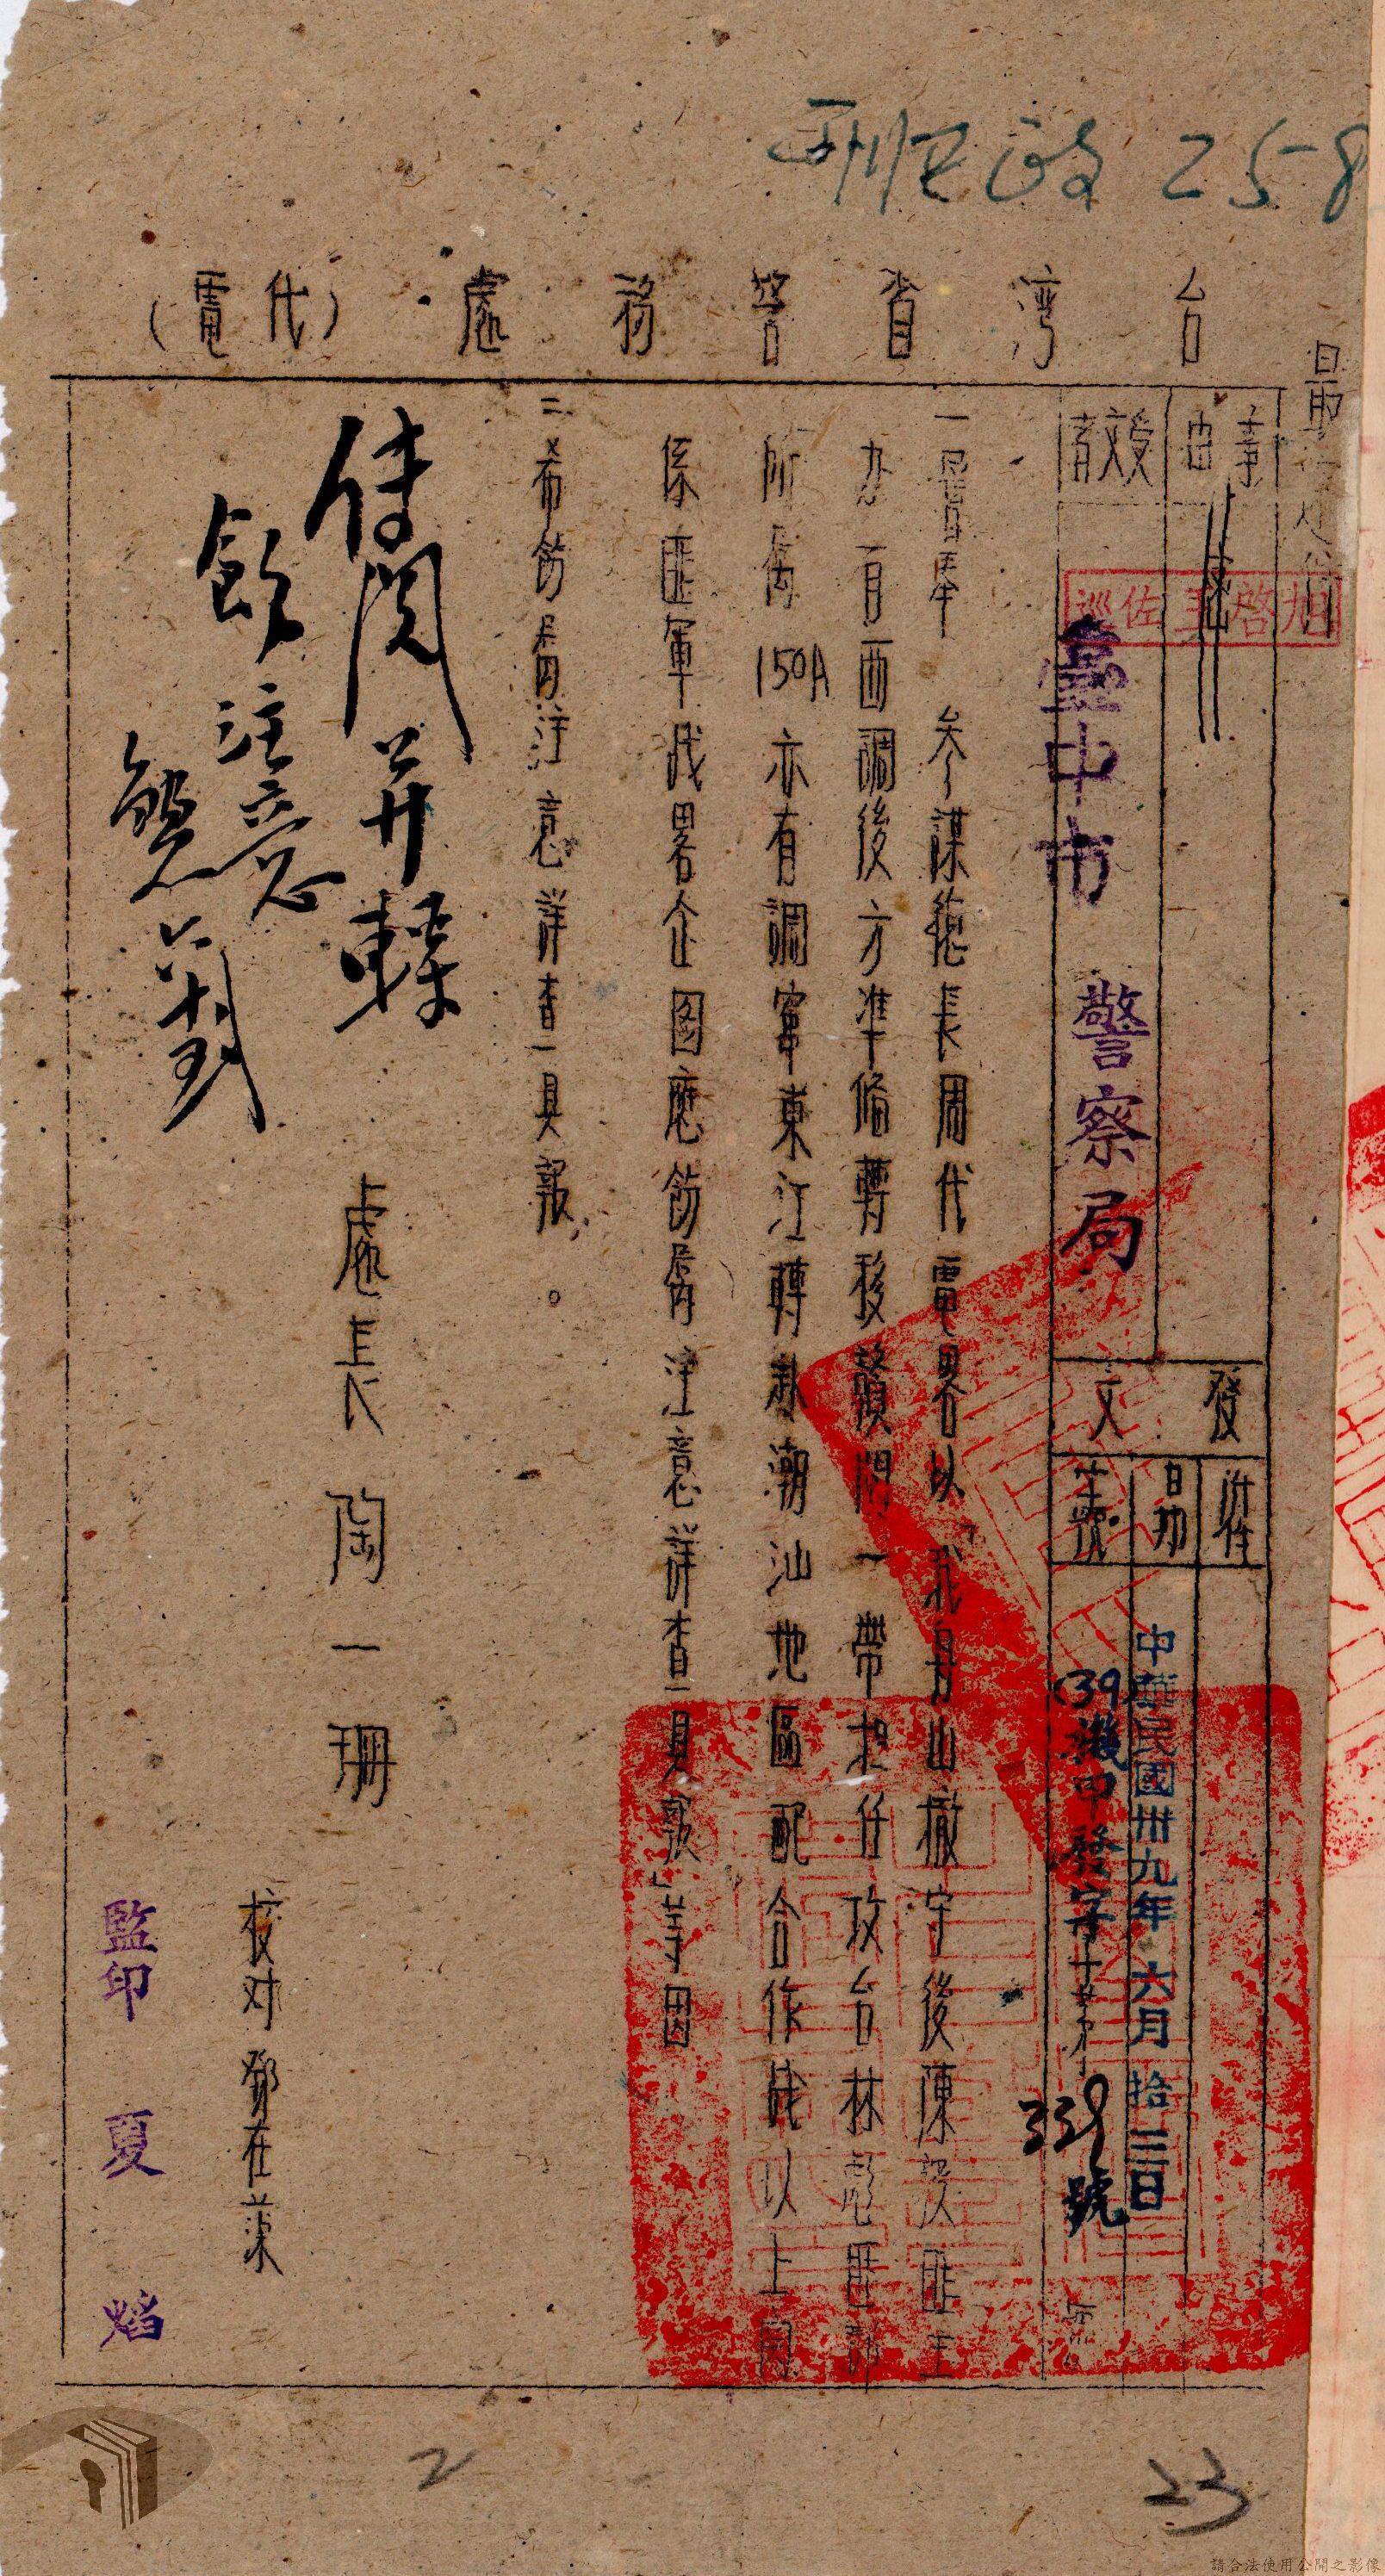 政 258
台灣省警務處（代電）
事由
受文者
臺中市 警察局
發文
日期
字號
中華民國卅九年六月拾三日
(39)機中發字第339號
一層奉 參謀總長周代電畧以「我舟山撤守後陳毅匪主
力有西調後方準備轉移廈門一帶担任攻台林彪匪部
所屬150A亦有調窜東江轉赴潮汕地區配合作战以上同
係匪軍战畧企图應飭屬注意詳查具報」等因
二希飭屬注意詳查具報。
處長 陶一珊
校对 鄧在
監印 夏焰
傳閱并轉
飭注意
2
23
請合法使用公開之影像